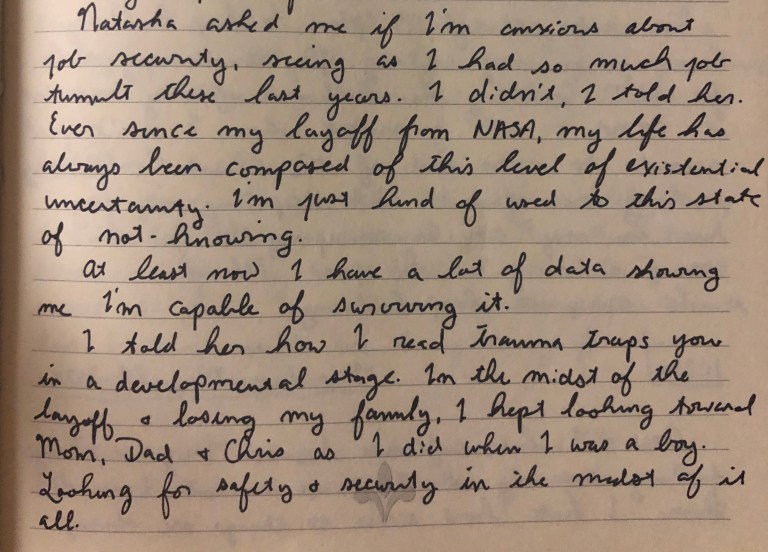 Natasha asked me if I'm anxious about
job security, seeing as I had so much job
tumult these last years. I didn't, I told her.
Ever since my layoff from NASA, my life has
always been composed of this level of existential
uncertainty. I'm just kind of used to this state
of not-knowing.
At least now I have a lot of data showing
me I'm capable of surviving it.
I told her how I read trauma traps you
in a developmental stage. In the midst of the
layoff & losing my family, I kept looking toward
Mom, Dad & Chris as I did when I was a boy.
Looking for safety & security in the midst of it
all.